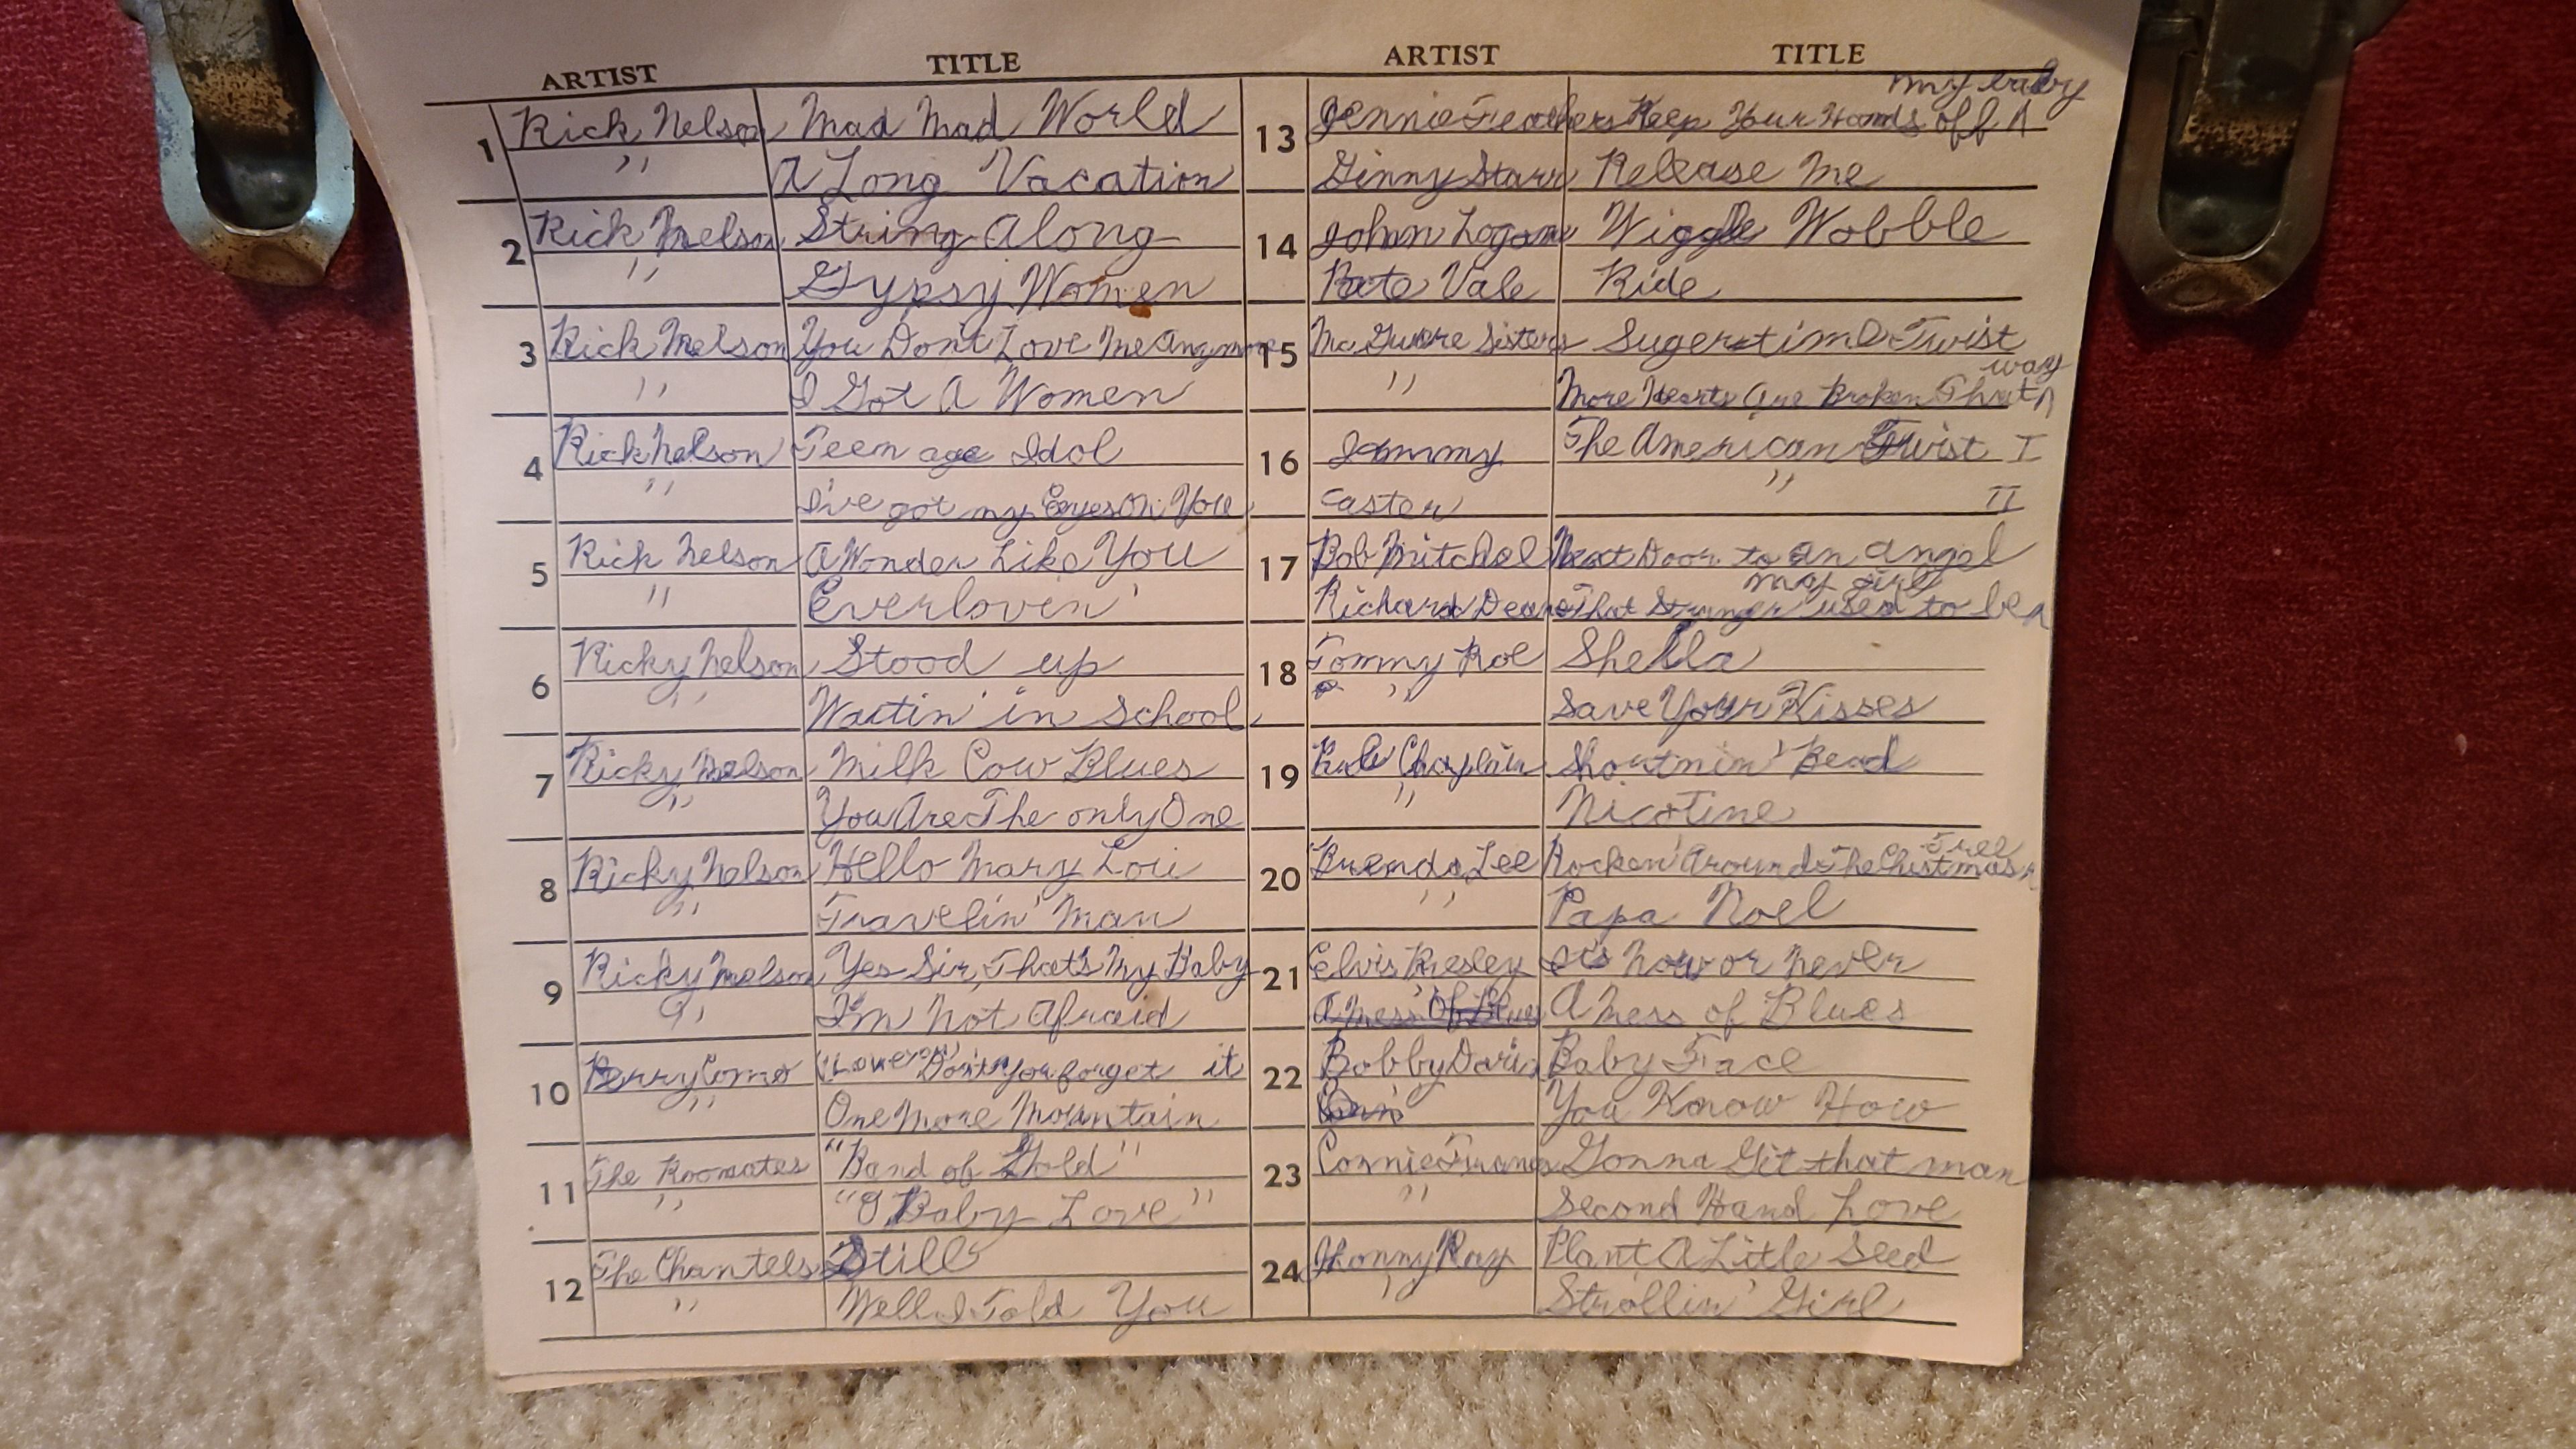 ARTIST TITLE ARTIST TITLE
1 Rick Nelson Mad Mad World
" A Long Vacation
2 Rick Nelson String Along
" Gypsy Women
3 Rick Nelson You Don't Love Me Anymore
" I Got A Women
4 Rick Nelson Teen age Idol
" I've got my Eyes On You
5 Rick Nelson A Wonder Like You
" Everlovin'
6 Ricky Nelson Stood up
" Waitin' in School
7 Ricky Nelson Milk Cow Blues
" You Are The only One
8 Ricky Nelson Hello Mary Lou
" Travelin' Man
9 Ricky Nelson Yes Sir, That's My Baby
" I'm Not Afraid
10 Perry Como "Love Don't You forget it
" One More Mountain
11 The Roomates "Band of Gold"
" "O Baby Love"
12 The Chantels Still
" Well I Told You
13 Jennie Feathers Keep Your Hands off ^ my baby
Ginny Starr Release Me
14 Johnn Logan Wiggle Wobble
Pate Vale Ride
15 Mc Guire Sisters Sugertime Twist
" More Hearts are Broken That ^ way
16 Jimmy The American Twist I
Caster " II
17 Bob Mitchel Next Door to an angel
Richard Deane That Stranger used to be ^ my girl
18 Tommy Roe Sheila
" Save Your Kisses
19 Chaplain Shortnin' Bead
" Nicotine
20 Brenda Lee Rocken' Around The Chistmas ^ Tree
" Papa Noel
21 Elvis Presley It's Now or Never
A Mess Of Blues A Mess of Blues
22 Bobby Darin Baby Face
You Know How
23 Connie Francis Gonna Git that man
" Second Hand Love
24 Jhonny Ray Plant A Litle Seed
" Strollin' Girl